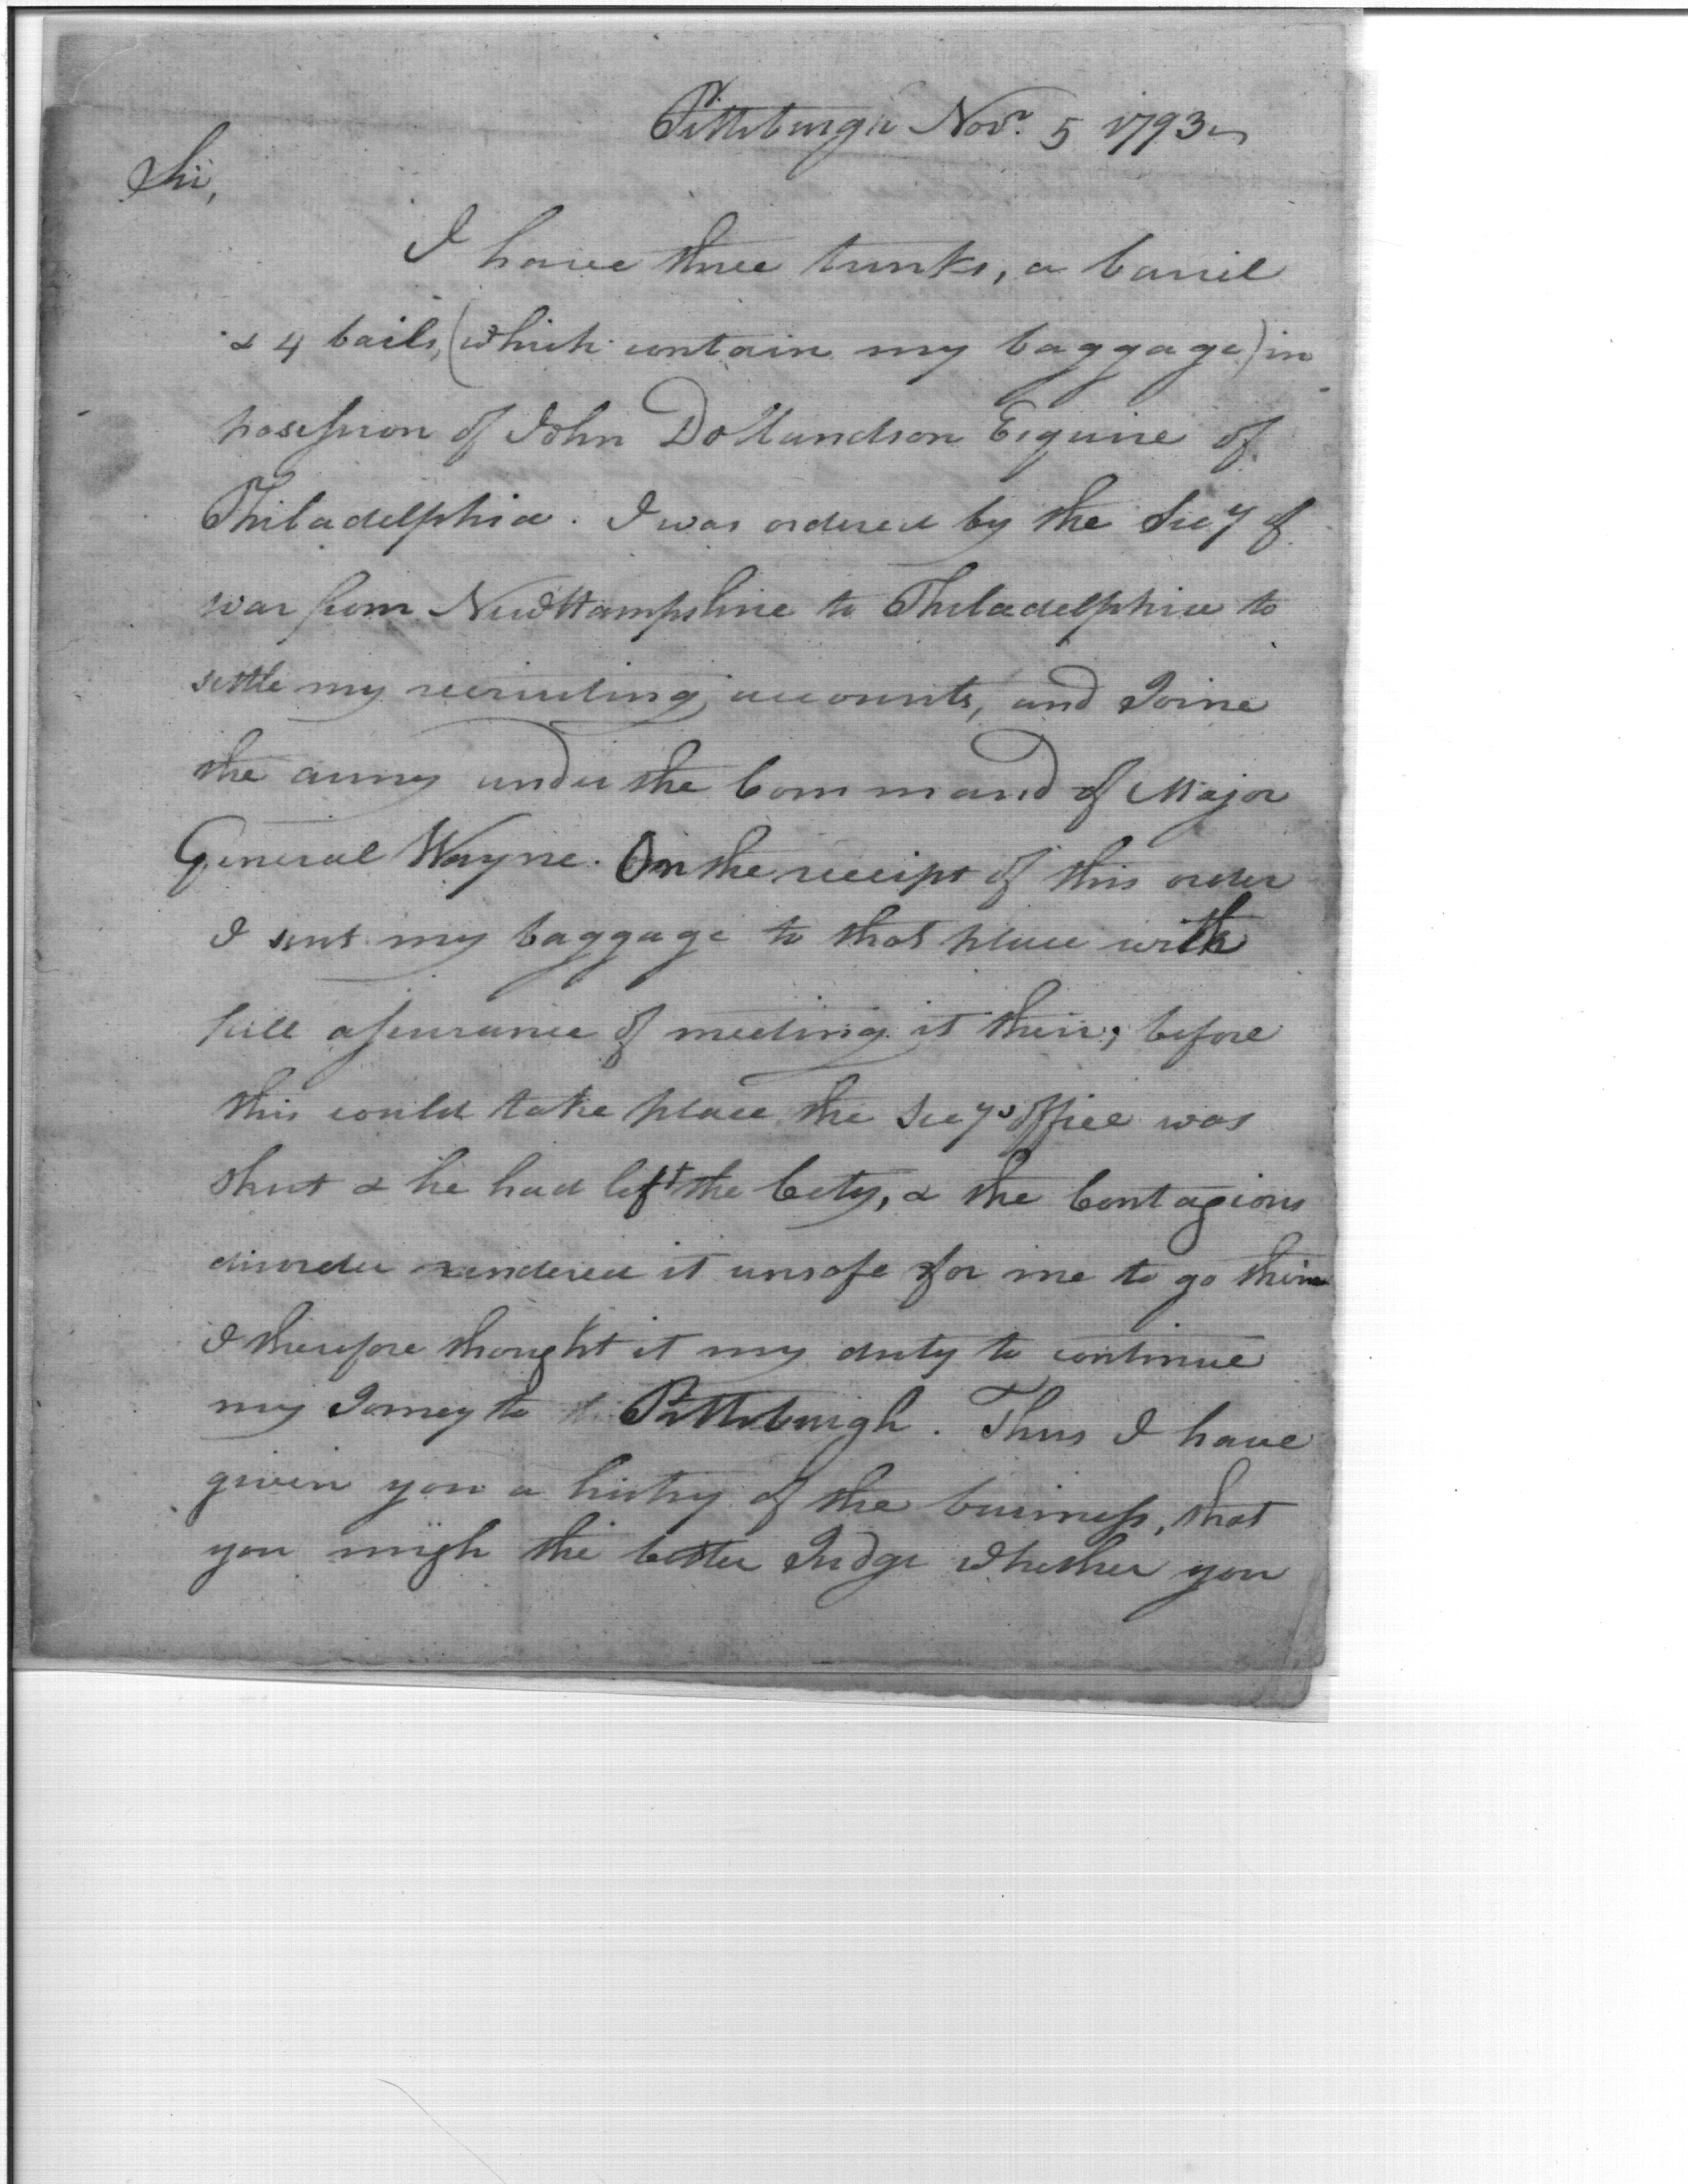 Pittsburgh Novr. 5 1793
Sir,
I have three trunks, a barril
& 4 bails, (which contain my baggage) in
posession of John Esquire of
Philadelphia. I was ordered by the Secy of
war from NewHampshire to Philadelphia to
settle my recruiting accounts, and Joine
the army under the Command of Major
General Wayne. On the receipt of this order
I sent my baggage to that place with
full assurance of meeting it their; before
this could take place the Secys office was
shut & he had left the City, & the Contagious
disorder rendered it unsafe for me to go their
I therefore thought it my duty to continue
my Jorney to Pittsburgh. Thus I have
given you a histry of the business, that
you migh the better Judge whether you